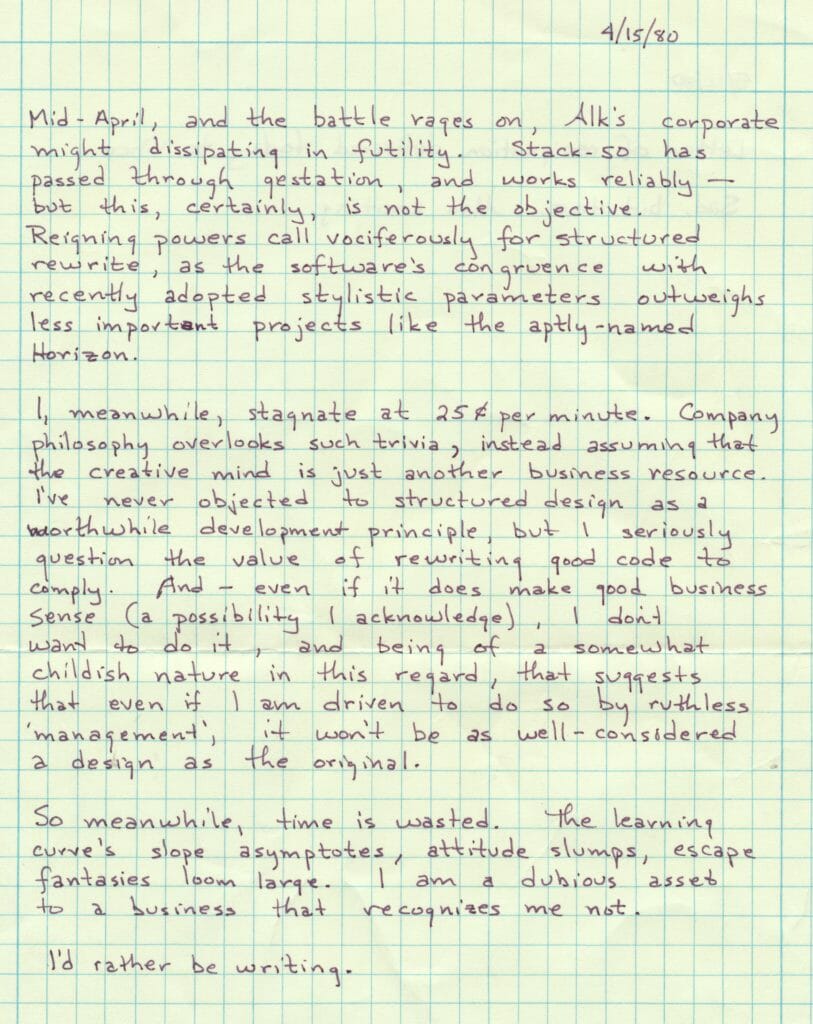 4/15/80
Mid-April, and the battle rages on, Alk's corporate
might dissipating in futility. Stack-50 has
passed through gestation, and works reliably —
but this, certainly, is not the objective.
Reigning powers call vociferously for structured
rewrite, as the software's congruence with
recently adopted stylistic parameters outweighs
less important projects like the aptly-named
Horizon.
I, meanwhile, stagnate at 25¢ per minute. Company
philosophy overlooks such trivia, instead assuming that
the creative mind is just another business resource.
I've never objected to structured design as a
worthwhile development principle, but I seriously
question the value of rewriting good code to
comply. And - even if it does make good business
sense (a possibility I acknowledge), I don't
want to do it, and being of a somewhat
childish nature in this regard, that suggests
that even if I am driven to do so by ruthless
'management', it won't be as well-considered
a design as the original.
So meanwhile, time is wasted. The learning
curve's slope asymptotes, attitude slumps, escape
fantasies loom large. I am a dubious asset
to a business that recognizes me not.
I'd rather be writing.